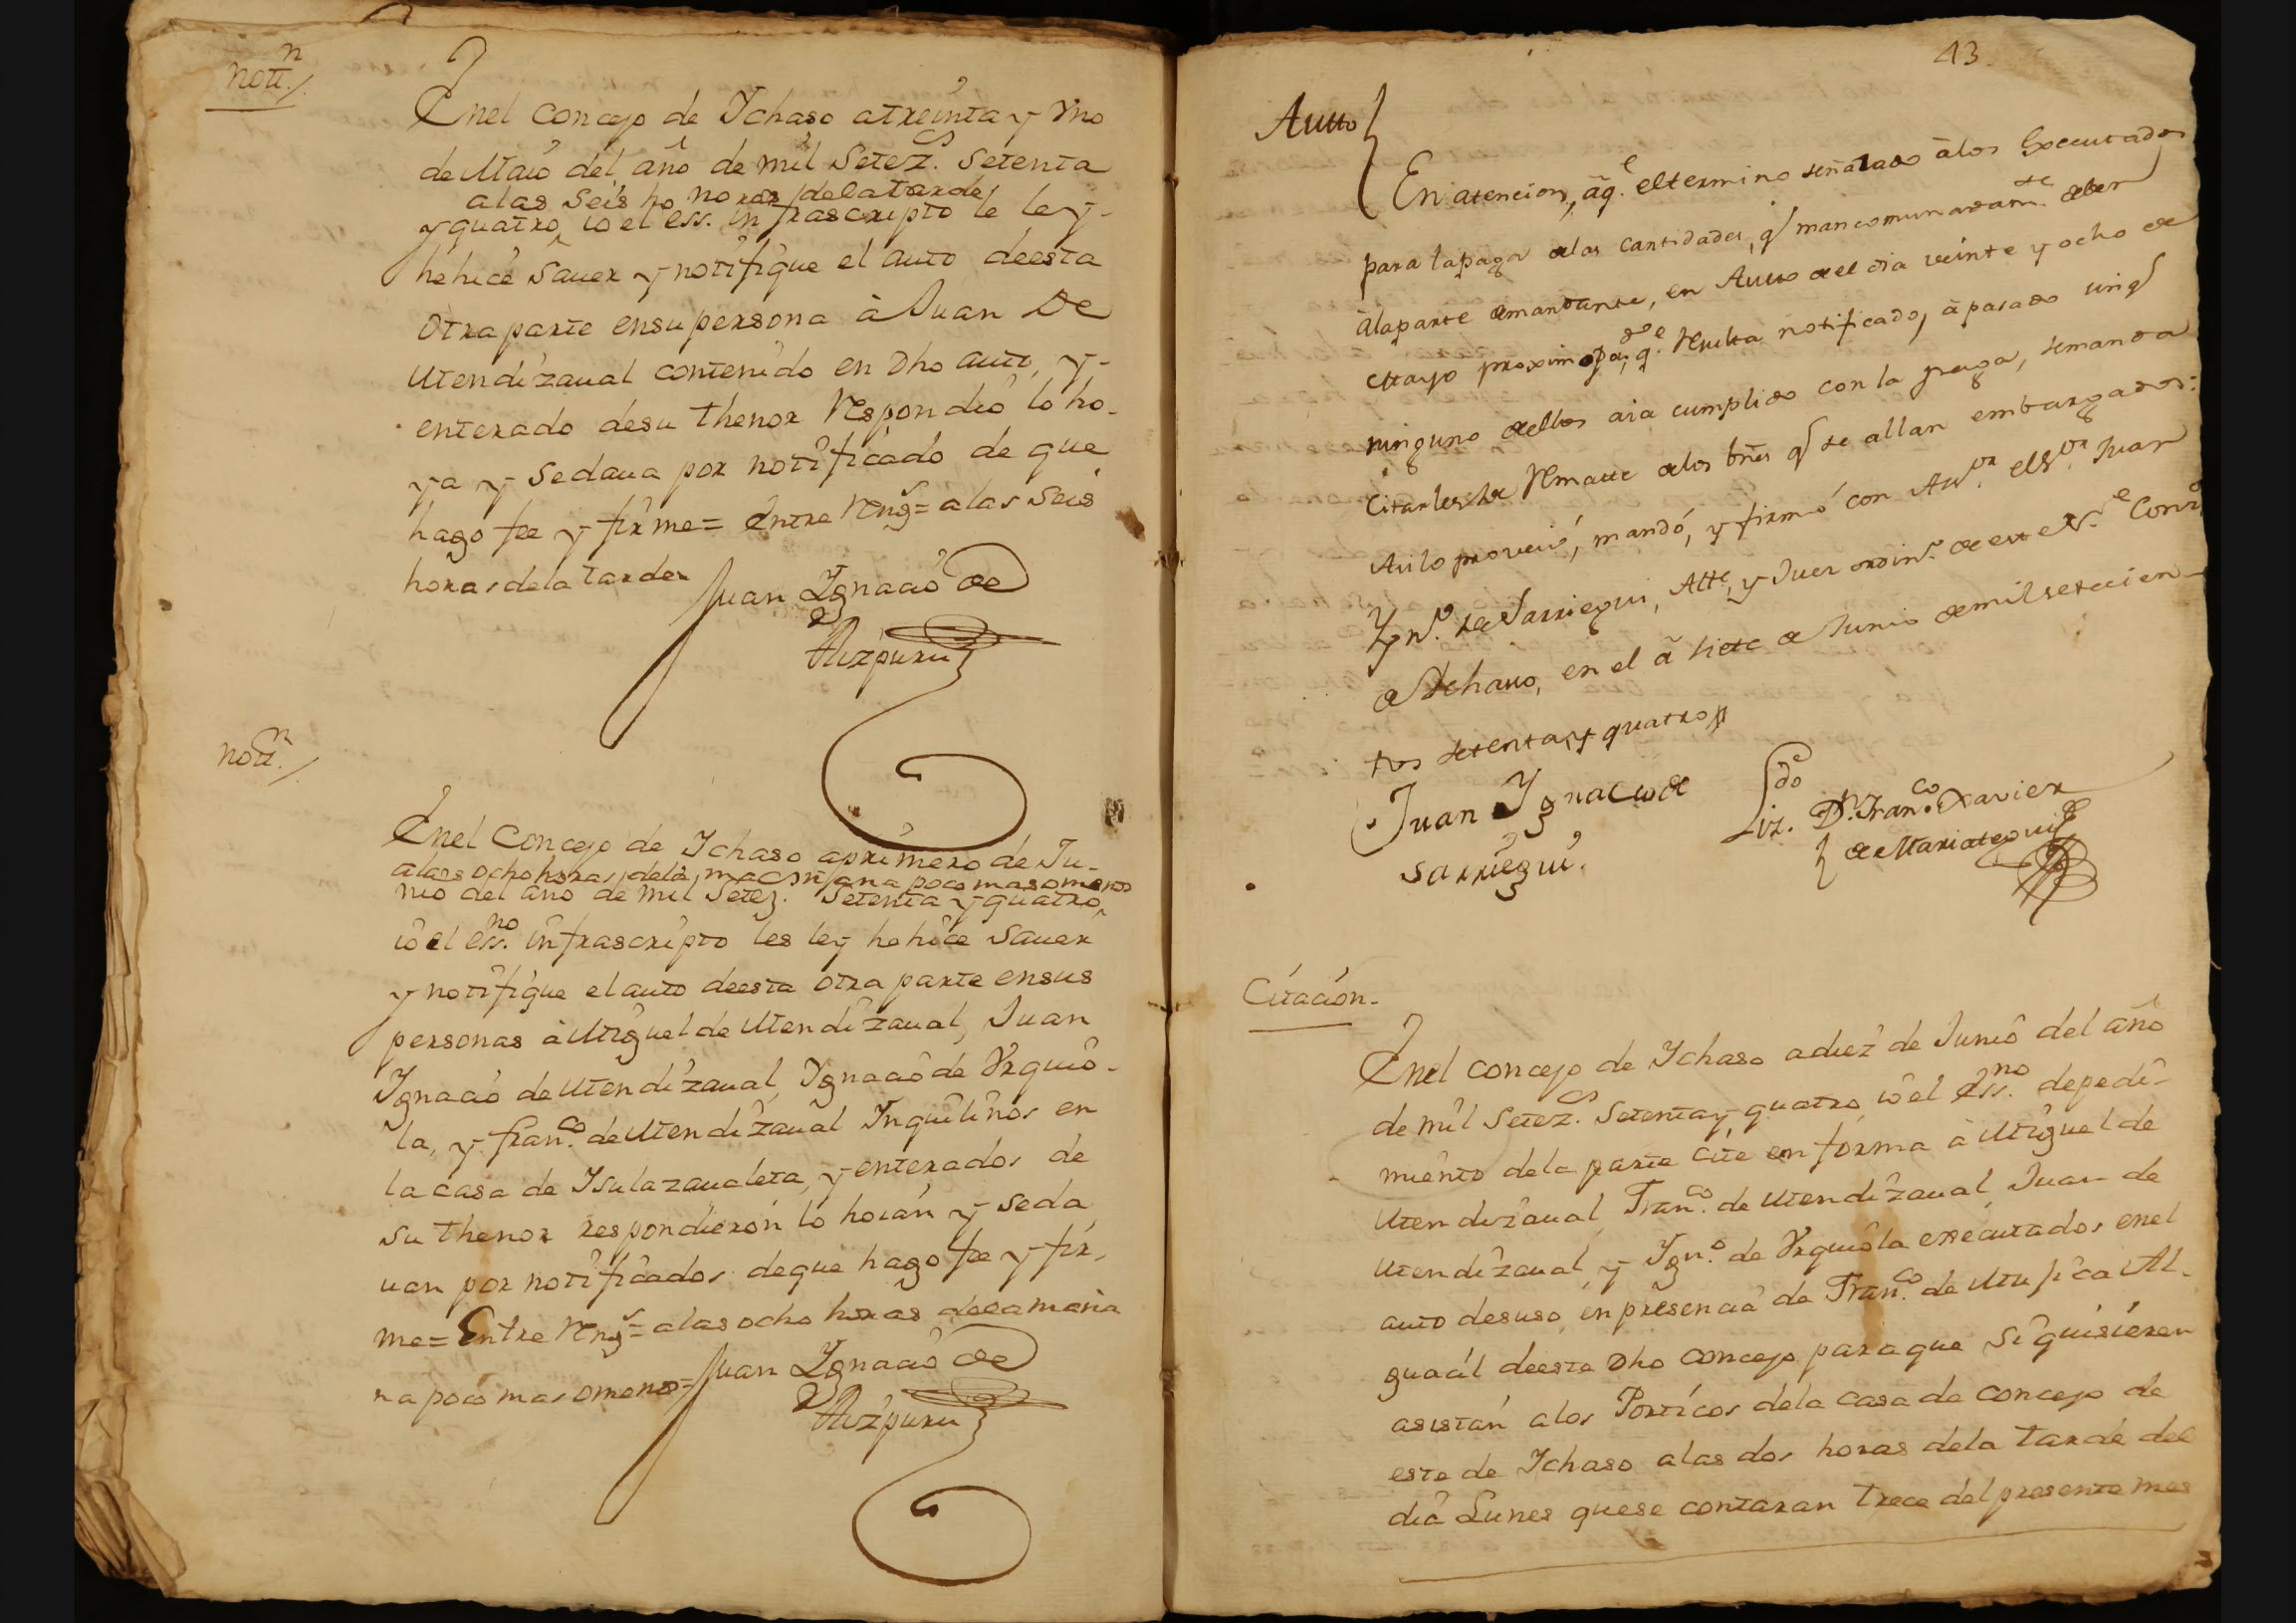 nottn./
Enel concejo de Ychaso atreinta y Vno
de Maio del año de mil Setezs. Setenta
alas Seis ho horas delatarde
y quatro io el ess.no infrascripto le ley
hehice Sauer y notifique el auto deesta
otra parte ensu persona à Juan De
Mendizaual contenido en Dho auto, y-
enterado desu thenor Respondio lo ho-
ya y Sedaua por notificado de que
hago fee y firme = entre Rengs = alas Seis
horas dela tarde
Juan Ygnacio de
Aizpuru
nottn./
Enel Concejo de Ychaso aprimero de Ju-
alas ocho horas dela mañana poco mas omenos
nio del año de mil Setezs. Setenta y quatro
io el ess.no infrascripto les ley hehice Sauer
y notifique el auto deesta otra parte ensus
personas à Miguel de Mendizaual, Juan
Ygnacio de Mendizaual, Ygnacio de Vrquio-
la, y fran.co de Mendizaual Ynquilinos en
la casa de Ysulazaualeta, y enterados de
Su thenor respondieron lo hoian y seda
uan por notificados deque hago fee y fir,
me = Entre Rengs = alas ocho horas dela maña
na poco mas omenos =
Juan Ygnacio de
Aizpuru
43
Autto
En atencion, âq.e eltermino señalado âlos Executados
para lapaga delas cantidades, q mancomunadam.te deben
âlaparte demandante, en Autto de el dia veinte y ocho de
Mayo proximo pa.do, q.e Resulta notificado, â pasado sinq
ninguno dellos aia cumplido con la paga, semanda
Citarles de Remate delos bñes q se allan embargados:
Asilo proveió, mandó, y firmó con As.or el S.or Juan
Ygn.o de Sarriegui, Alt.e, y Juez ordin.o de este N.e Conz.o
de Ychaso, en el â siete de Junio de mil setecien-
tos setenta, y quatro
Juan Ygnacio de
sarriegui.
Liz.do Dn. Fran.co Xavier
de Mariategui
Citacion.
Enel concejo de Ychaso adiez de Junio del año
de mil Setezs. Setenta y quatro io el Ess.no depedi-
miento dela parte cite en forma à Miguel de
Mendizaual Fran.co de Mendizaual Juan de
Mendizaual, y Ygn.o de Vrquiola executados enel
auto desuso, en presencia de Fran.co de Mujica Al-
guacil deeste Dho concejo para que Si quisieren
asistan alos Porticos dela casa de concejo de
este de Ychaso alas dos horas dela tarde del
dia Lunes quese contaran trece del presente mes